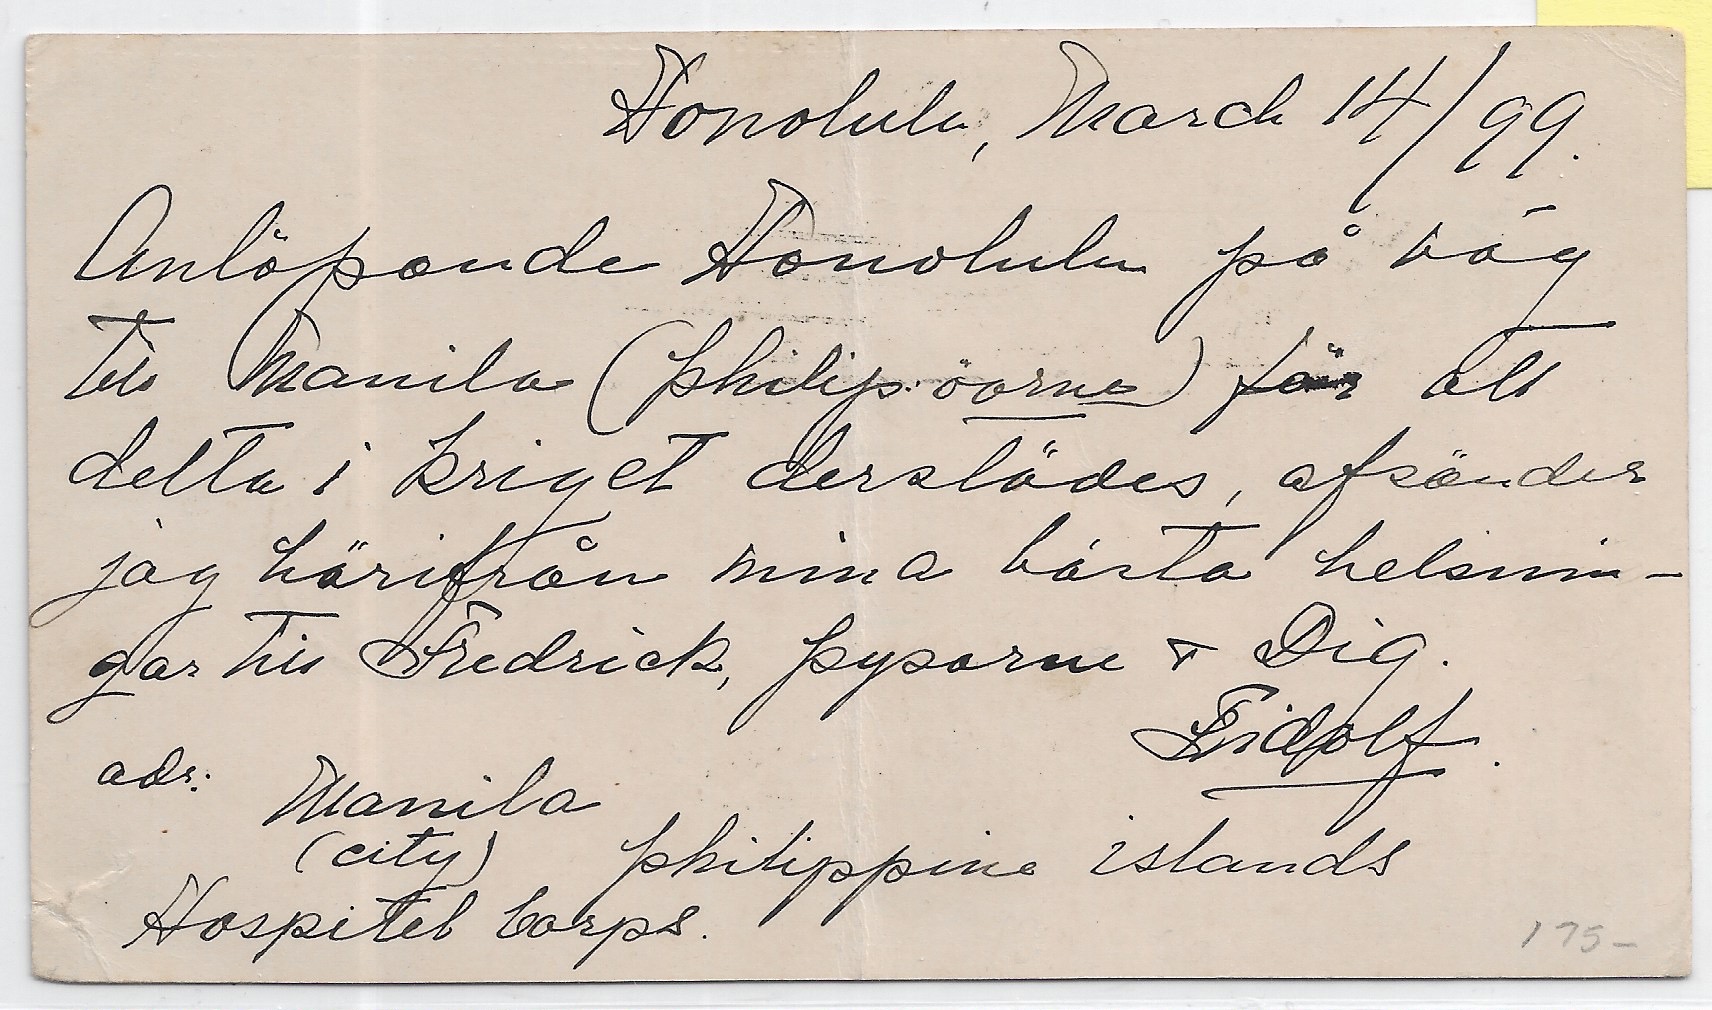 Honolulu, March 14/99.
Anlöpande Honolulu på väg
till Manila (Philip: öarne) för att
delta i kriget derstädes, afsänder
jag härifrån mina bästa helsnin-
gar till Fredrick, pysarne & Dig.
Fridolf.
adr: Manila
(city) Philippine islands
Hospital Corps.
175-